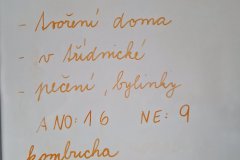 - tvoření doma
- v třídnické
- pečení, bylinky
ANO: 16 NE: 9
kombucha